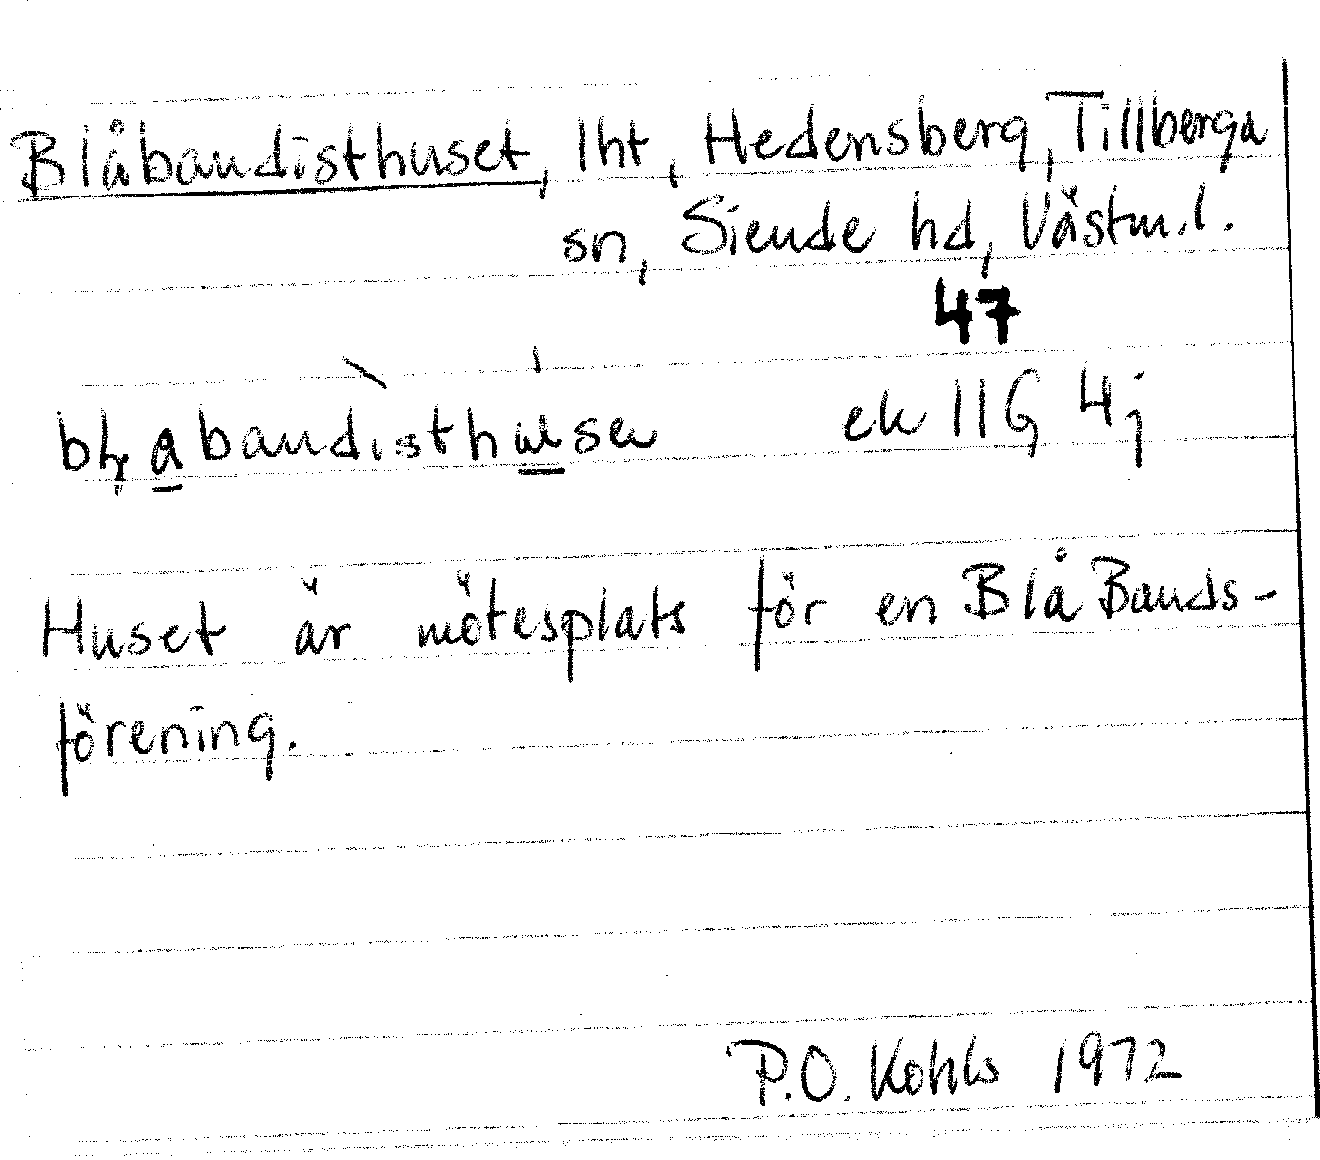 Blåbandisthuset, lht, Hedensberg, Tillberga
sn, Siende hd, Västm.l.
47
ek 11G 4j
Huset är mötesplats för en Blå Bands-
förening.
P.O. Kohls 1972